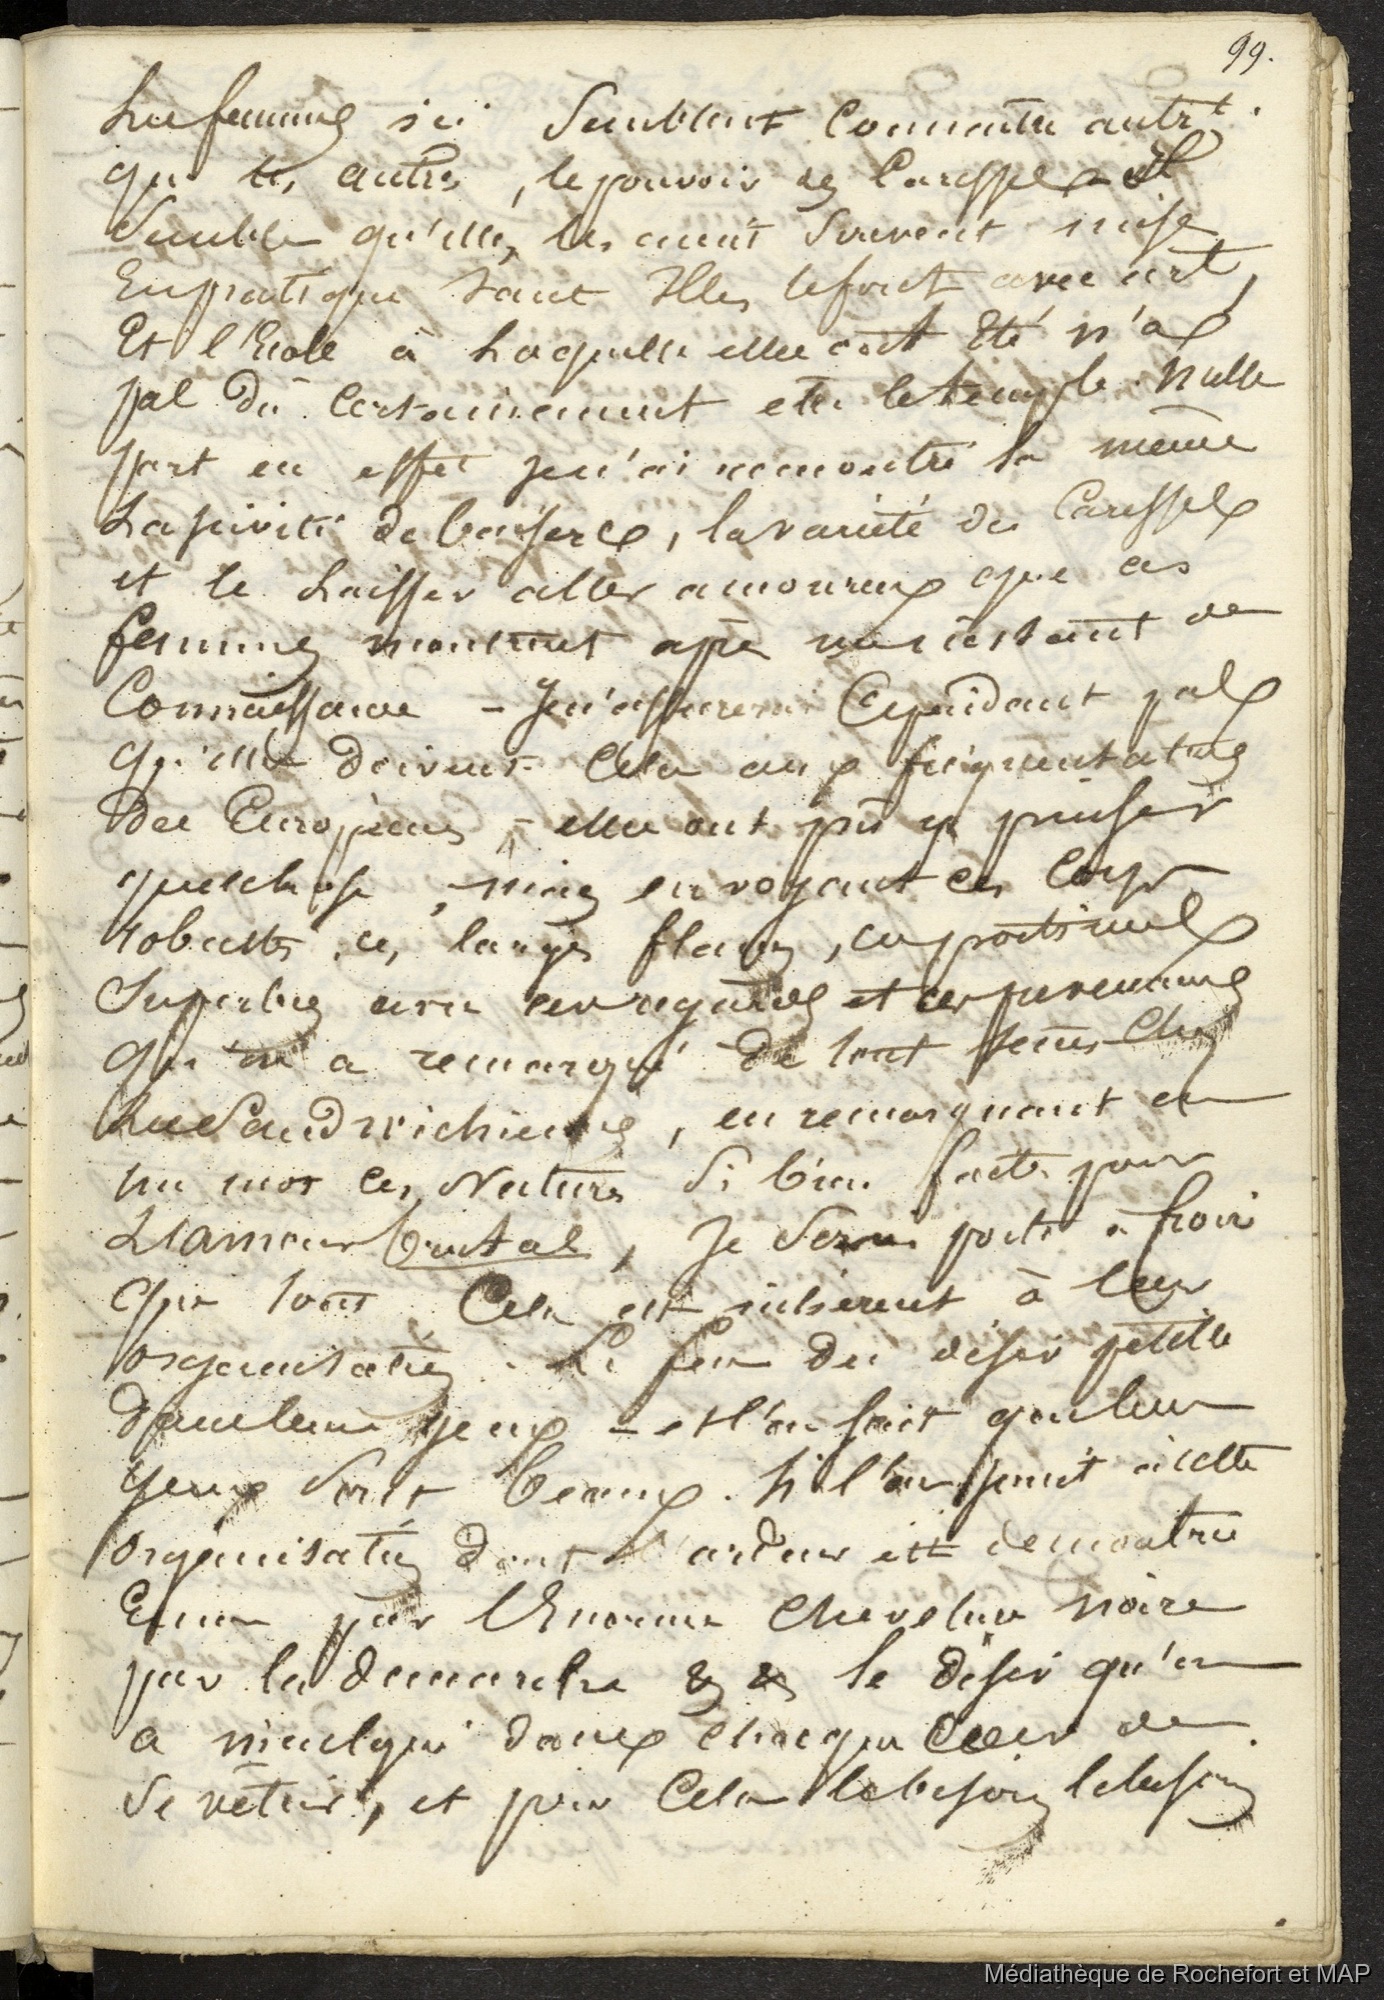 99.
Les femmes ici semblent connaitre autrt
que les autres, le pouvoir des caresses - il
semble qu'elles les aient souvent mises
en pratique tant elles le font avec art,
Et l'Ecole à laquelle elles ont été n'a
pas dû certainement etre le temple. Nulle
part en effet je n'ai rencontré la même
lascivité de baisers, la variété des caresses
et le laisser aller amoureux que ces
femmes montrent après un instant de
connaissance - Je n'assurerai cependant pas
qu'elles doivent cela aux fréquentations
des Européens - elles ont pu y puiser
quelchose, mais en voyant ces corps
robustes, ces larges flancs, ces poitrines
superbes
qu'on a remarqué de tout tems chez
les Sandwichiennes, en remarquant en
un mot ces natures si bien faites pour
L'amour brutal, Je serai porté à croire
que tout cela est inhérent à leur
organisation. Le feu du désir petille
dans leurs yeux - et l'on sait que leurs
yeux sont beaux. Si l'on joint à cette
organisation dont l'ardeur est demontrée
Encore par l'Enorme chevelure noire
par la demarche & & le desir qu'on
a inculqué dans chaque coeur de
se vêtir, et pour cela le besoin le besoin
Médiathèque de Rochefort et MAP